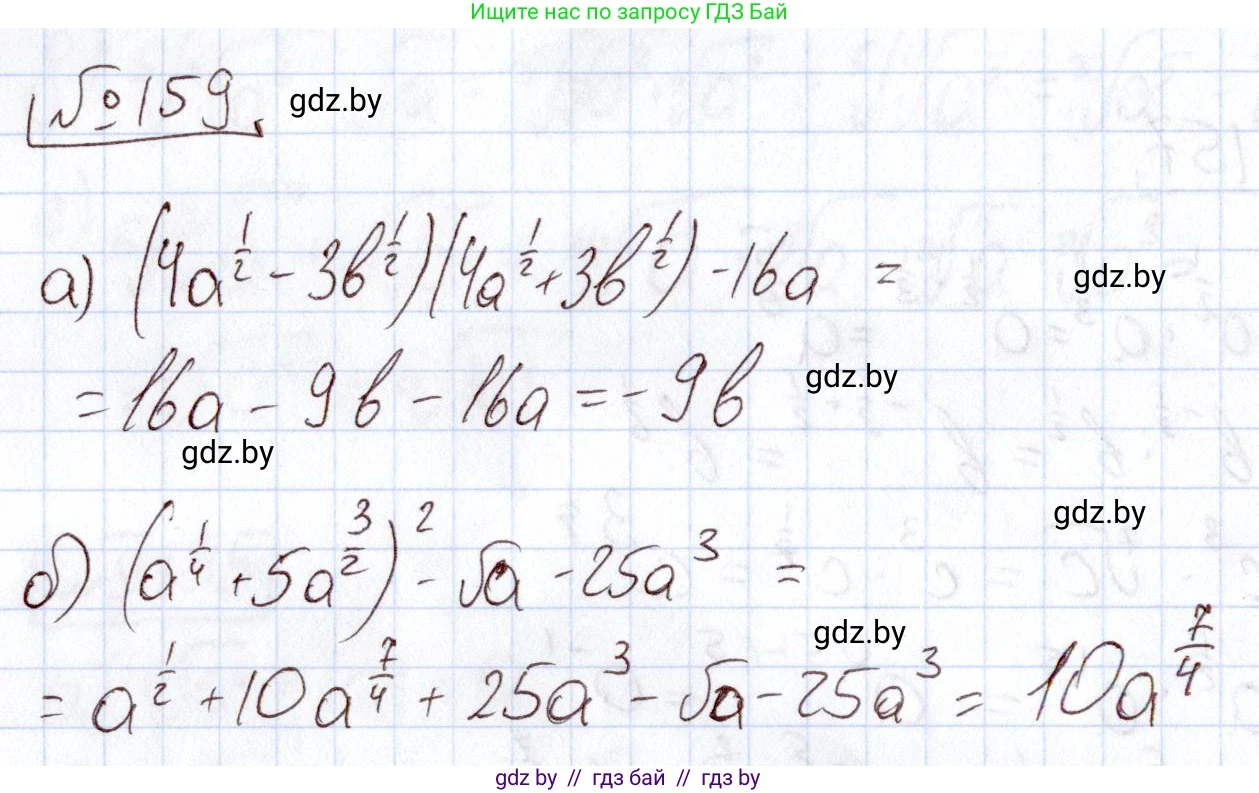 Ищите нас по запросу ГДЗ Бай
№159 gdz.by
а) (4a^{1/2} - 3b^{1/2})(4a^{1/2} + 3b^{1/2}) - 16a = gdz.by
= 16a - 9b - 16a = -9b gdz.by
gdz.by
gdz.by
б) (a^{1/4} + 5a^{3/2})^2 - √a - 25a^3 =
gdz.by
= a^{1/2} + 10a^{7/4} + 25a^3 - √a - 25a^3 = 10a^{7/4}
gdz by // гдз бай // гдз by